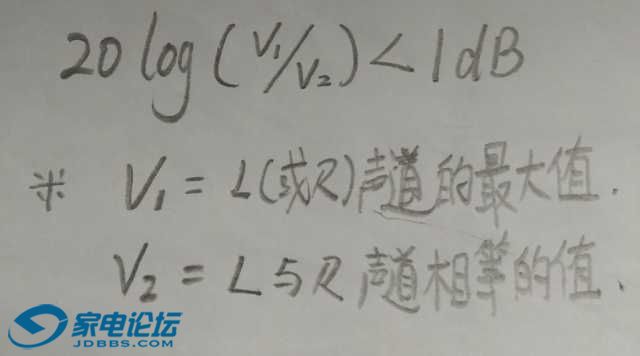 20 log (V₁/V₂) < 1dB
※ V₁ = L(或R)声道的最大值.
V₂ = L与R声道相等的值.
家电论坛
JDBBS.COM